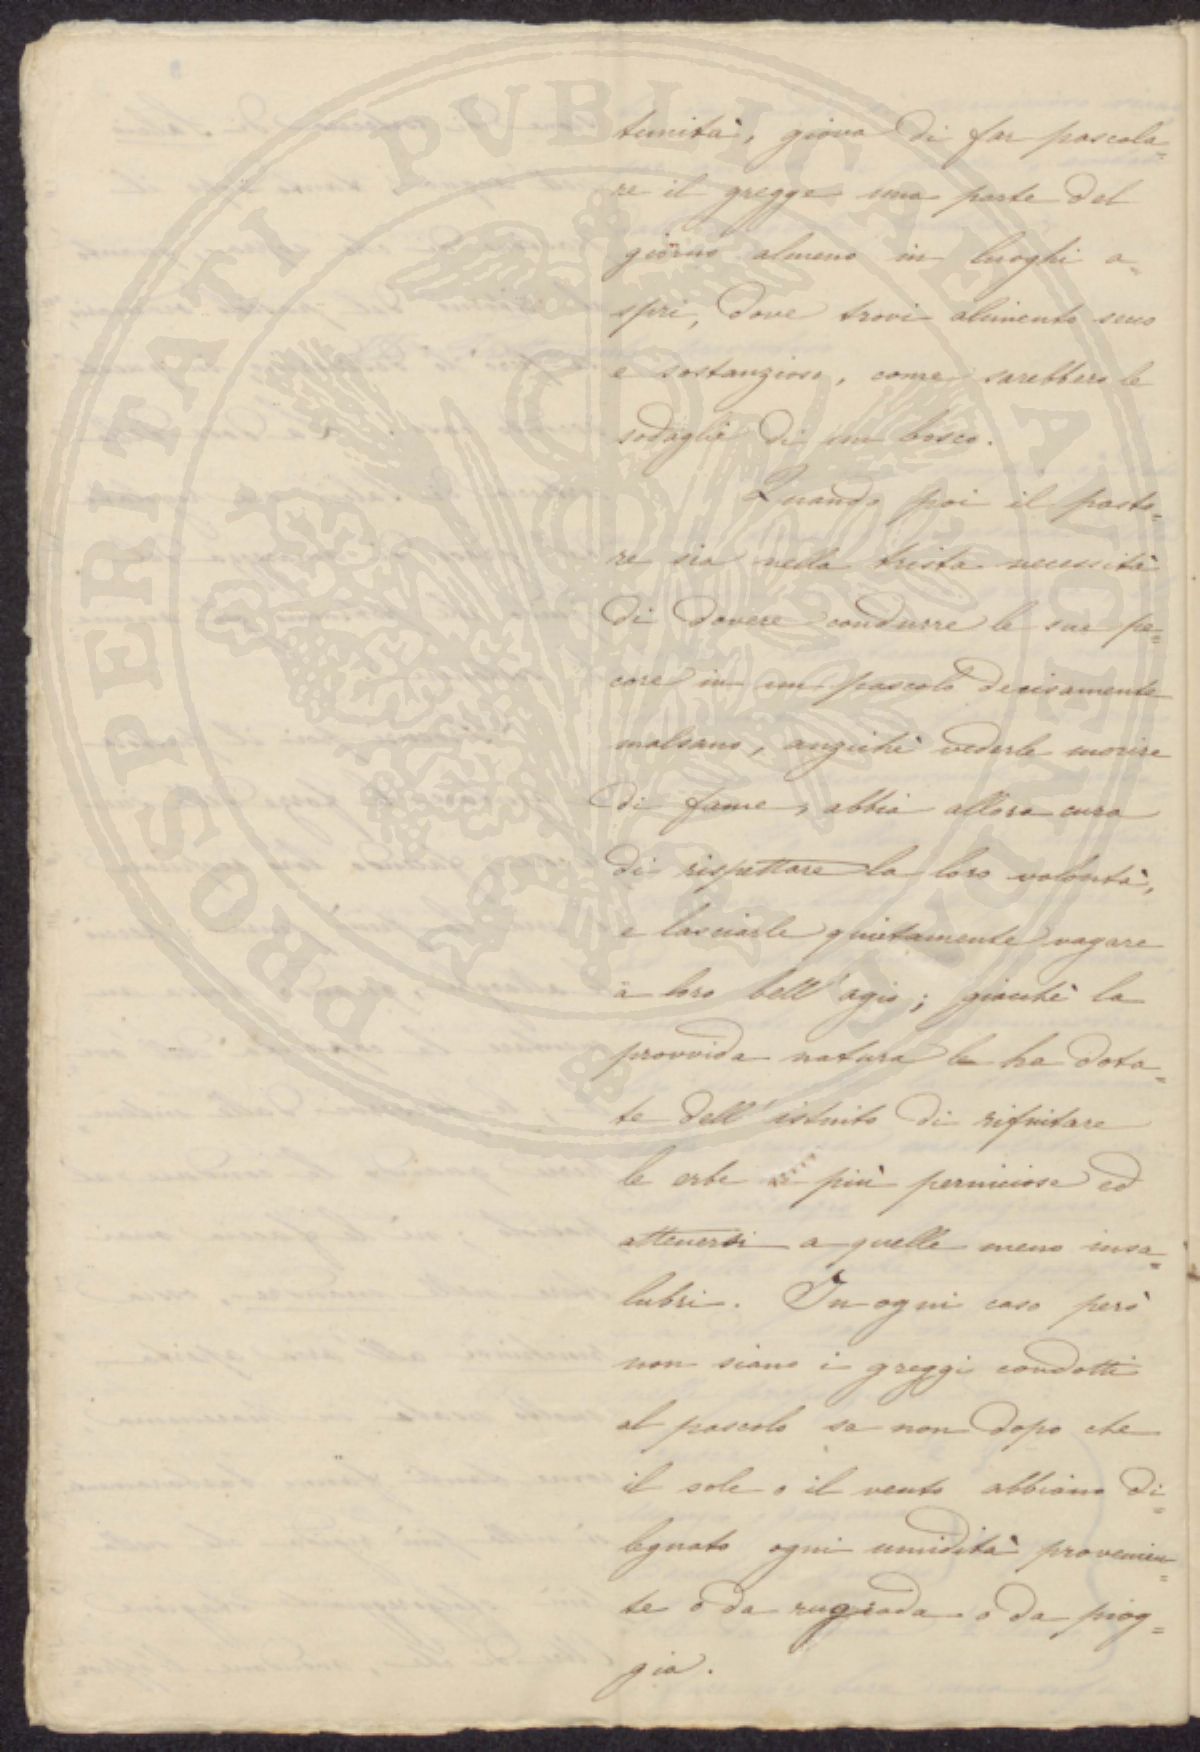 PROSPERITATI PVBLICAE AVGENDAE
tunità, giova di far pascola=
re il gregge una parte del
giorno almeno in luoghi a=
spri, dove trovi alimento seco
e sostanzioso, come sarebbero le
sodaglie di un bosco.
Quando poi il pasto=
re sia nella trista necessità
di dovere condurre le sue pe=
core in un pascolo decisamente
malsano, anzichè vederle morire
di fame, abbia allora cura
di rispettare la loro volontà,
e lasciarle quietamente vagare
a loro bell'agio; giacchè la
provvida natura le ha dota=
te dell'istinto di rifiutare
le erbe più perniciose ed
attenersi a quelle meno insa=
lubri. In ogni caso però
non siano i greggi condotti
al pascolo se non dopo che
il sole o il vento abbiano di=
leguato ogni umidità provenien=
te o da rugiada o da piog=
gia.